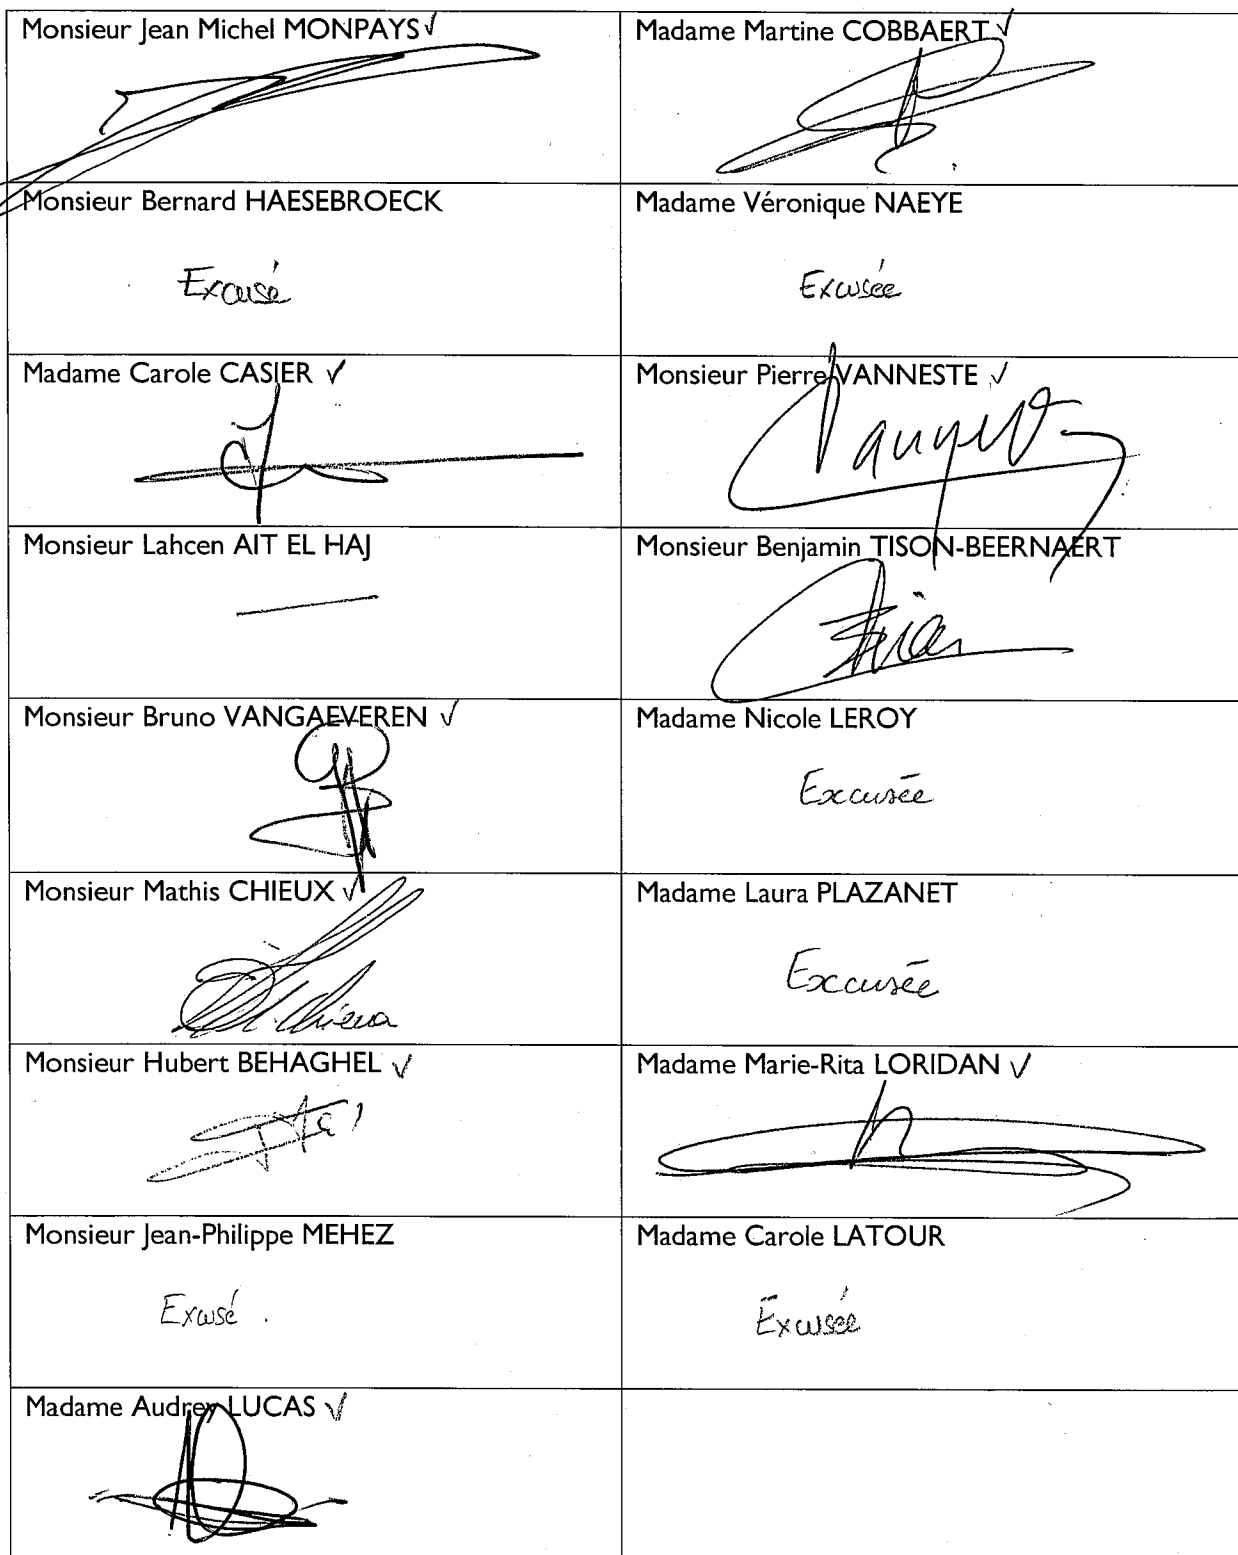 Monsieur Jean Michel MONPAYS ✓
Madame Martine COBBAERT ✓
Monsieur Bernard HAESEBROECK
Excusé
Madame Véronique NAEYE
Excusée
Madame Carole CASIER ✓
Monsieur Pierre VANNESTE ✓
Monsieur Lahcen AIT EL HAJ
Monsieur Benjamin TISON-BEERNAERT
Monsieur Bruno VANGAEVEREN ✓
Madame Nicole LEROY
Excusée
Monsieur Mathis CHIEUX ✓
Madame Laura PLAZANET
Excusée
Monsieur Hubert BEHAGHEL ✓
Madame Marie-Rita LORIDAN ✓
Monsieur Jean-Philippe MEHEZ
Excusé.
Madame Carole LATOUR
Excusée
Madame Audrey LUCAS ✓